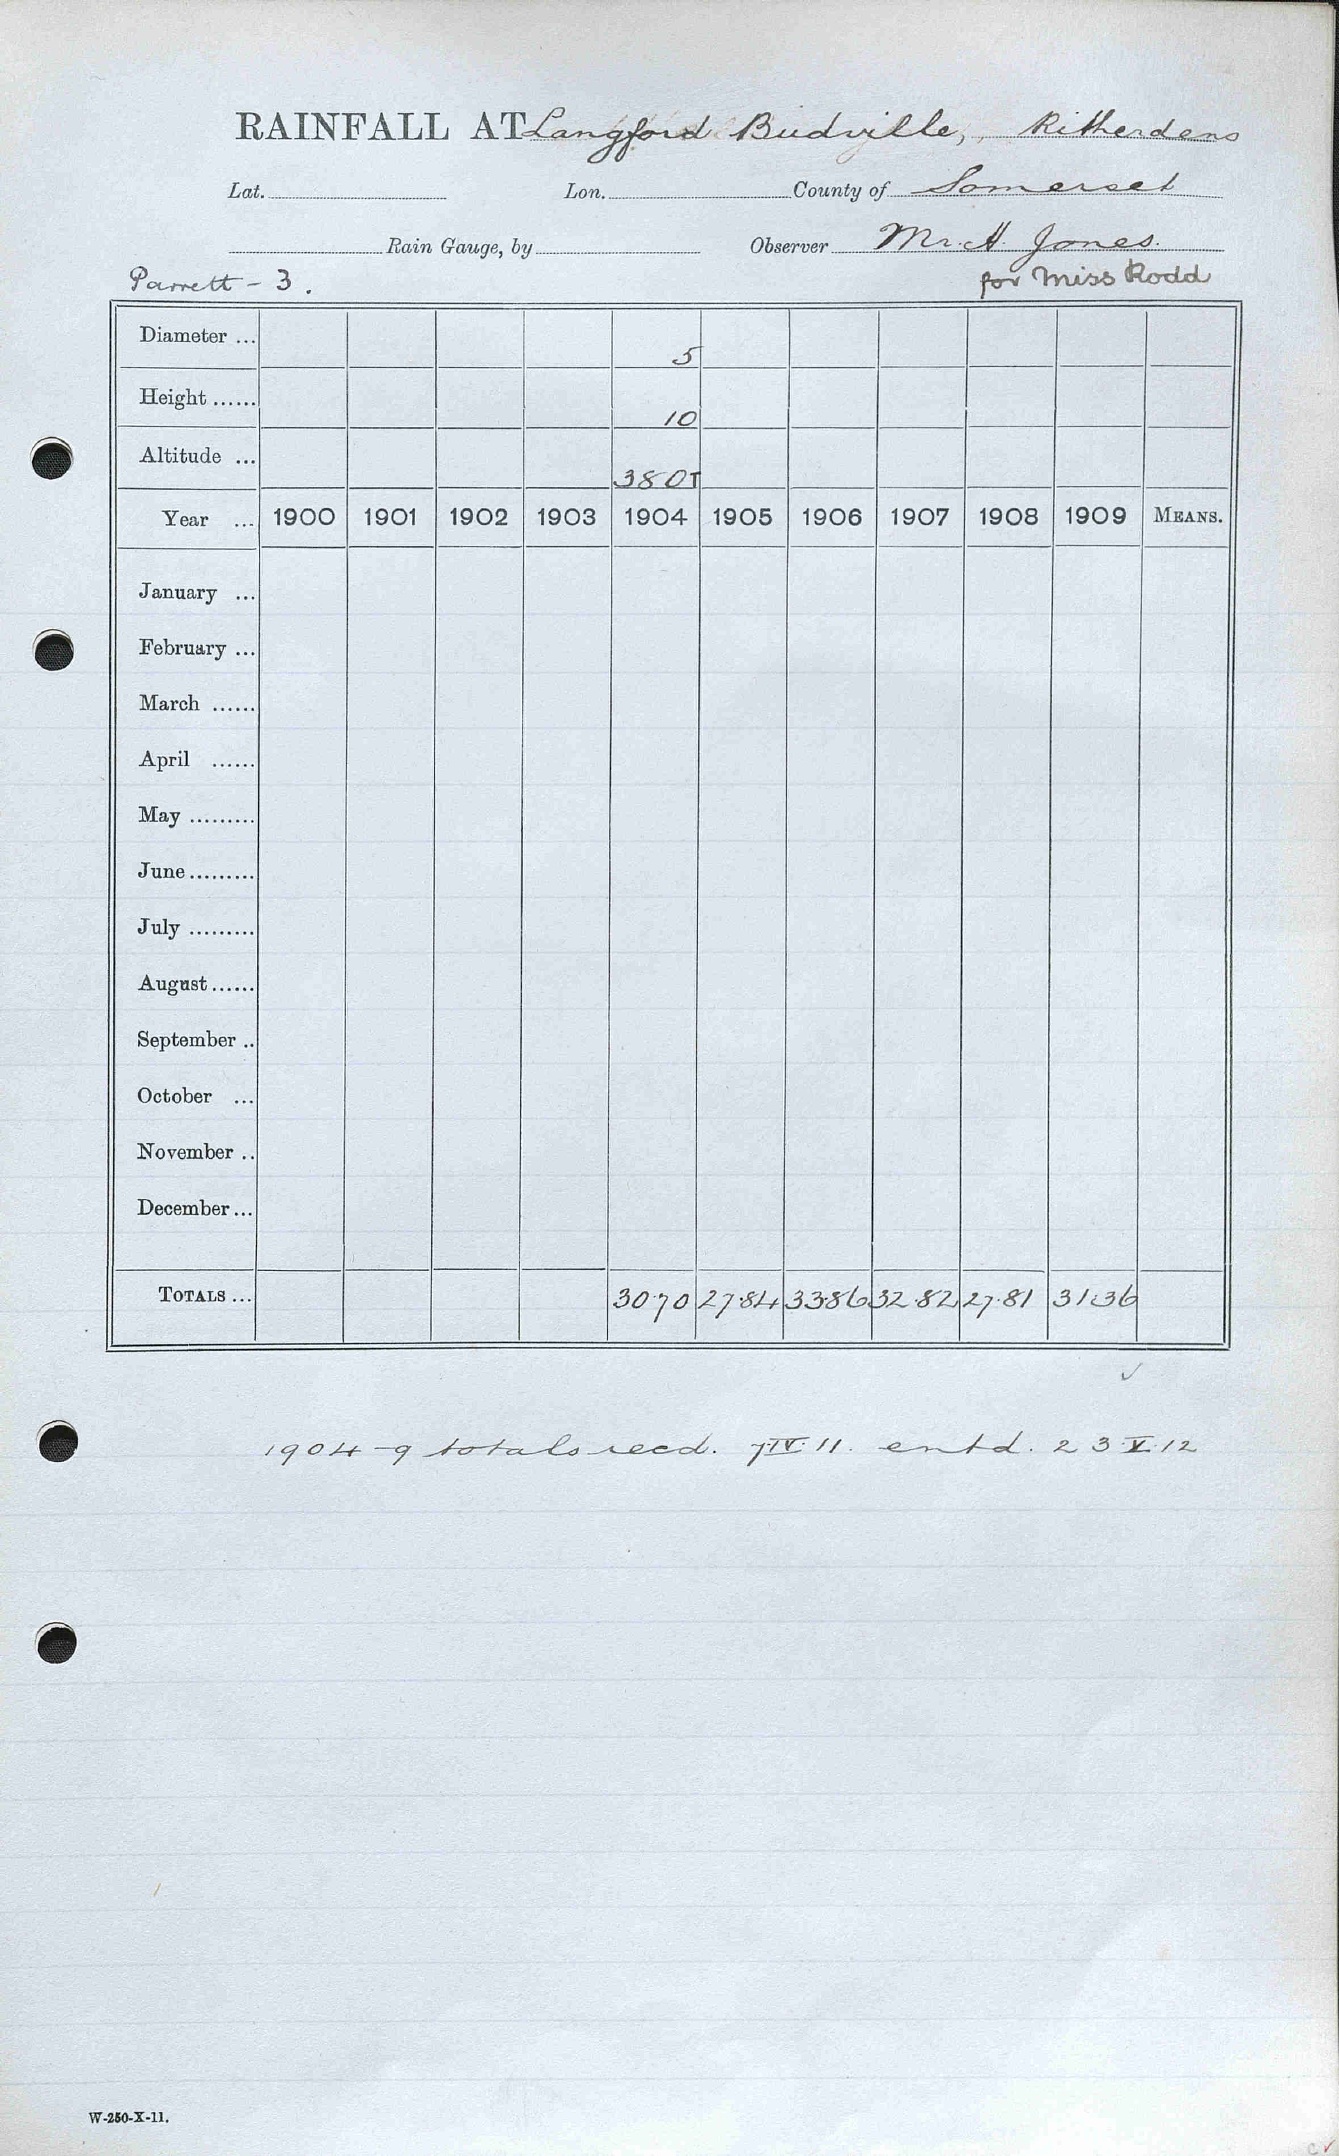 RAINFALL AT Langford Budville, Ritherdens
Lat. Lon. County of Somerset
Rain Gauge, by Observer Mr. H. Jones.
Parrett - 3. for Miss Rodd
Diameter ... 5
Height ...... 10
Altitude ... 380T
Year ... 1900 1901 1902 1903 1904 1905 1906 1907 1908 1909 MEANS.
January ...
February ...
March ......
April ......
May .........
June .........
July .........
August ......
September ..
October ...
November ..
December ...
TOTALS ... 30.70 27.84 33.86 32.82 27.81 31.36
✓
1904-9 totals recd. 7.IV.11. entd. 23.V.12
W-250-X-11.